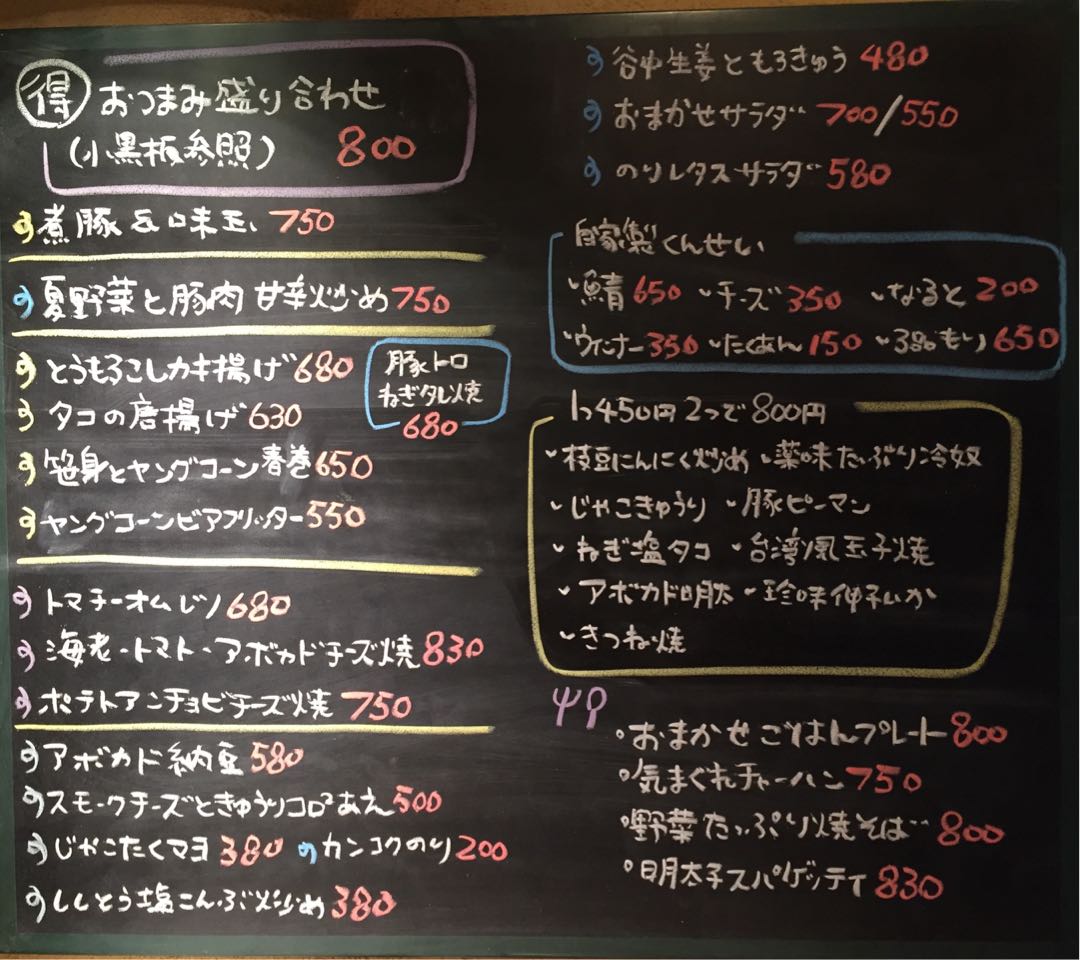 得 おつまみ盛り合わせ
(小黒板参照) 800
煮豚&味玉 750
夏野菜と豚肉 甘辛炒め 750
とうもろこしカキ揚げ 680
豚トロ
ねぎタレ焼
680
タコの唐揚げ 630
笹身とヤングコーン春巻 650
ヤングコーンビアフリッター 550
トマチーオムレツ 680
海老・トマト・アボカドチーズ焼 830
ポテトアンチョビチーズ焼 750
アボカド納豆 580
スモークチーズときゅうりコロ²あえ 500
じゃこたくマヨ 380 カンコクのり 200
ししとう塩こんぶ炒め 380
谷中生姜ともろきゅう 480
おまかせサラダ 700/550
のりレタスサラダ 580
自家製くんせい
・鯖 650 ・チーズ 350 ・なると 200
・ウィンナー 350 ・たくあん 150 ・3品もり 650
1つ450円 2つで800円
・枝豆にんにく炒め ・薬味たっぷり冷奴
・じゃこきゅうり ・豚ピーマン
・ねぎ塩タコ ・台湾風玉子焼
・アボカド明太 ・珍味
・きつね焼
おまかせごはんプレート 800
気まぐれチャーハン 750
野菜たっぷり焼そば 800
明太子スパゲッティ 830